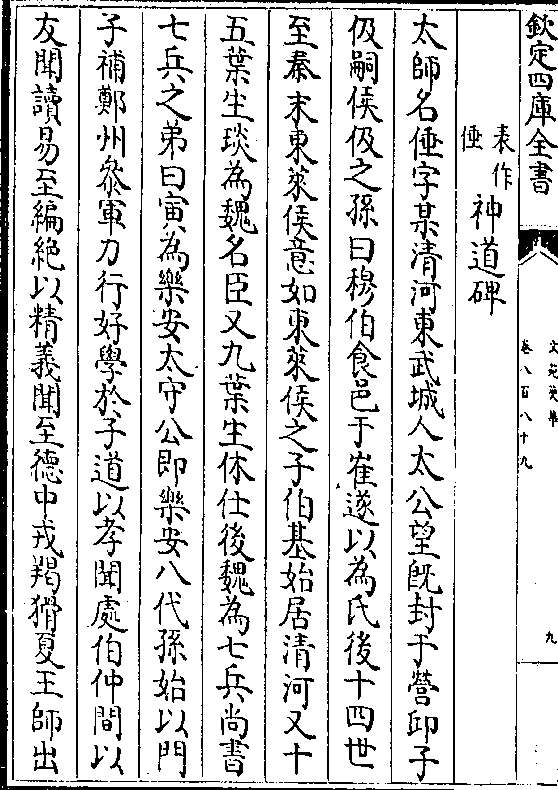 欽定四庫全書
文苑英華
卷八百八十九
九
表作
倕
神道碑
太師名倕字某清河東武城人太公望旣封于營邱子
伋嗣侯伋之孫曰穆伯食邑于崔遂以為氏後十四世
至秦末東萊侯意如東萊侯之子伯基始居清河又十
五葉生琰為魏名臣又九葉生休仕後魏為七兵尚書
七兵之弟曰寅為樂安太守公即樂安八代孫始以門
子補鄭州參軍力行好學於子道以孝聞處伯仲間以
友聞讀易至編絶以精義聞至德中戎羯猾夏王師出